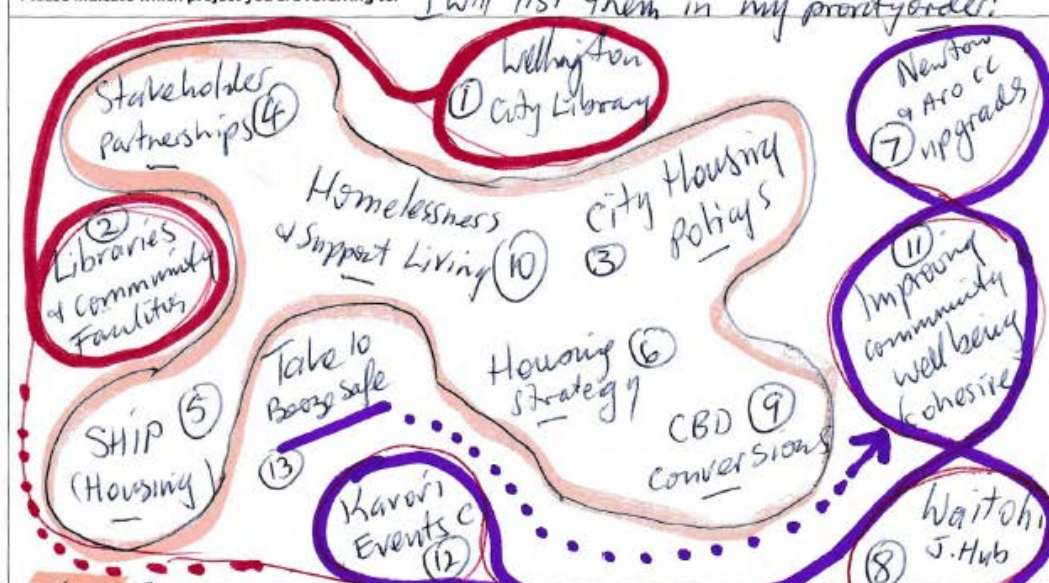 Please indicate which project you are referring to.
I will list them in my prority order!
Stakeholder
partnerships ④
① Wellington
City Library
Newtown
& Aro CC
⑦ upgrads
②
Libraries
& Community
Facilities
Homelessness
& Support Living ⑩
City Housing
③ policys
⑪
Improving
community
well being
cohesive
SHIP ⑤
(Housing)
Take 10
Booze safe
⑬
Housing ⑥
strategy
CBD ⑨
conversions
Karori
Events C
⑫
Waitohi
J. Hub
⑧